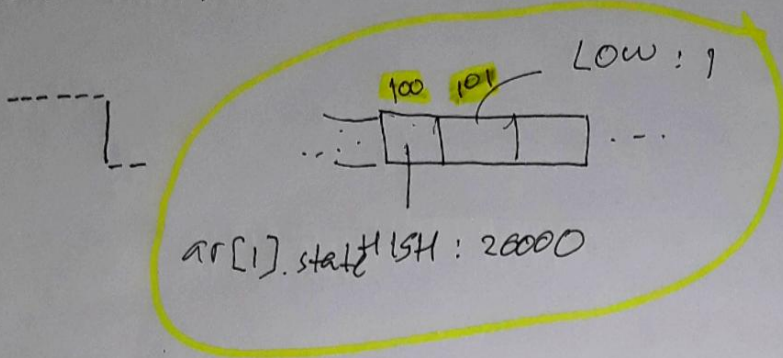 100 101 LOW : 1
ar[1].state HIGH : 26000